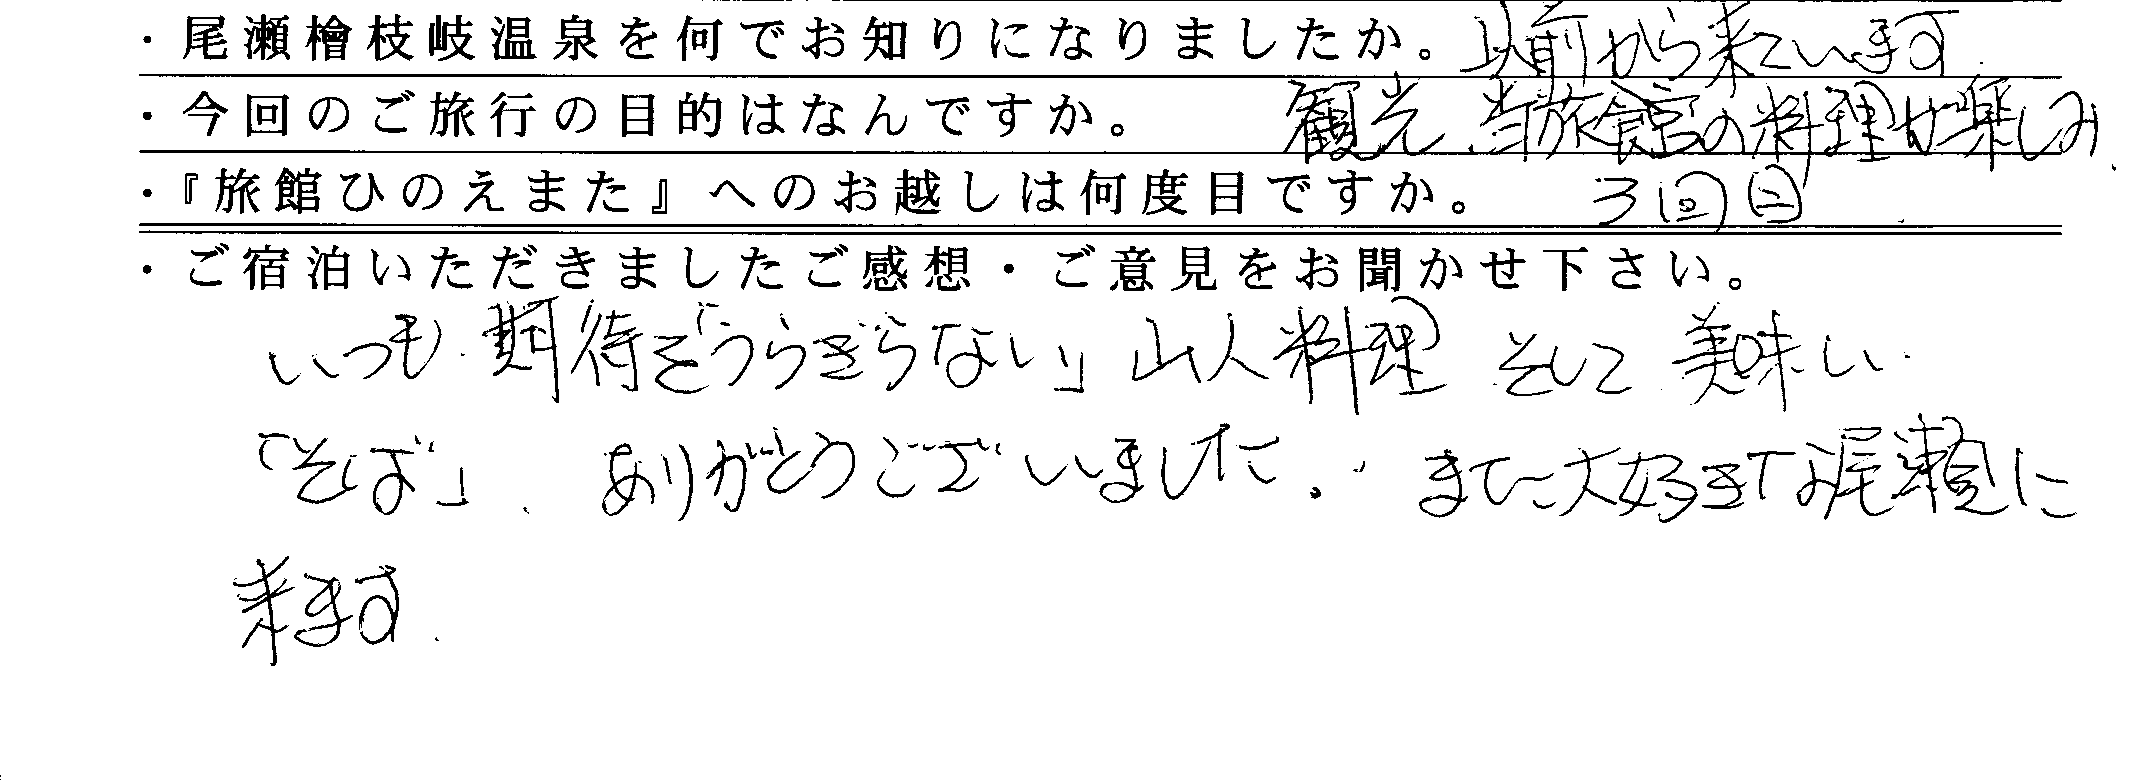 ・尾瀬檜枝岐温泉を何でお知りになりましたか。以前から来ています
・今回のご旅行の目的はなんですか。観光 当旅館の料理が楽しみ
・『旅館ひのえまた』へのお越しは何度目ですか。3回目
・ご宿泊いただきましたご感想・ご意見をお聞かせ下さい。
いつも期待を「うらぎらない」山人料理 そして美味しい
「そば」、ありがとうございました。また大好きな尾瀬に
来ます.